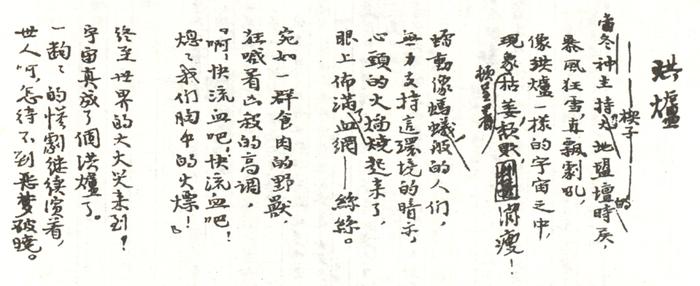 洪爐
——楔子——
當冬神主持大地盟壇的時候,
暴風狂雪,直飄劇吼,
像洪爐一樣的宇宙之中,
現象枯萎, 消瘦!
蠕動像螞蟻般的人們,
無力支持這環境的暗示,
心頭的火焰燒起來了,
眼上佈滿了血網——絲絲。
宛如一群食肉的野獸,
狂喊着凶殺的高調,
『啊,快流血吧,快流血吧!
熄了我们胸中的火燎!』
終至世界的大火災来到!
宇宙真成了個洪爐了。
一齣々的慘劇继续演着,
世人呵,怎待不到惡梦破曉。